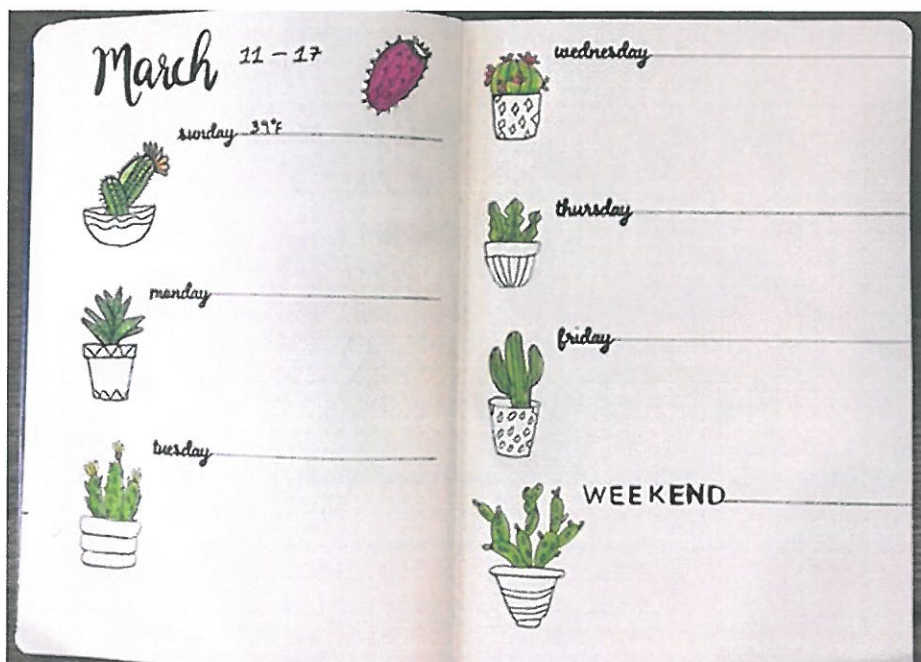 March 11 - 17
sunday 39°F
monday
tuesday
wednesday
thursday
friday
WEEKEND